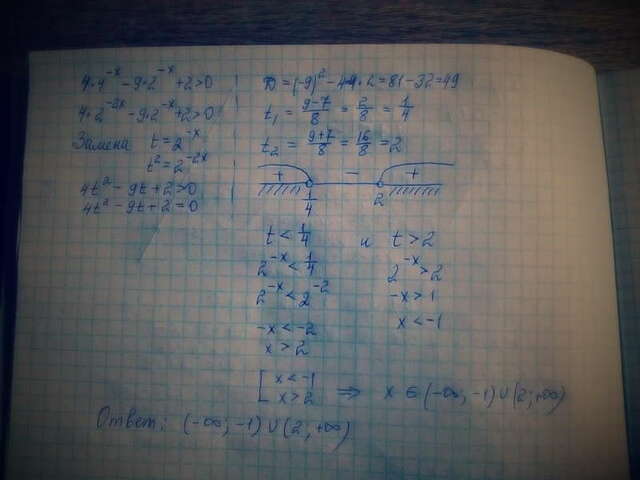 4·4^-x - 9·2^-x + 2 > 0
4·2^-2x - 9·2^-x + 2 > 0
Замена t = 2^-x
t² = 2^-2x
4t² - 9t + 2 > 0
4t² - 9t + 2 = 0
D = (-9)² - 4·4·2 = 81 - 32 = 49
t₁ = (9-7)/8 = 2/8 = 1/4
t₂ = (9+7)/8 = 16/8 = 2
+ - +
1/4 2
t < 1/4 и t > 2
2^-x < 1/4 2^-x > 2
2^-x < 2^-2 -x > 1
-x < -2 x < -1
x > 2
[ x < -1
x > 2 ⇒ x ∈ (-∞; -1) ∪ (2; +∞)
Ответ: (-∞; -1) ∪ (2; +∞)